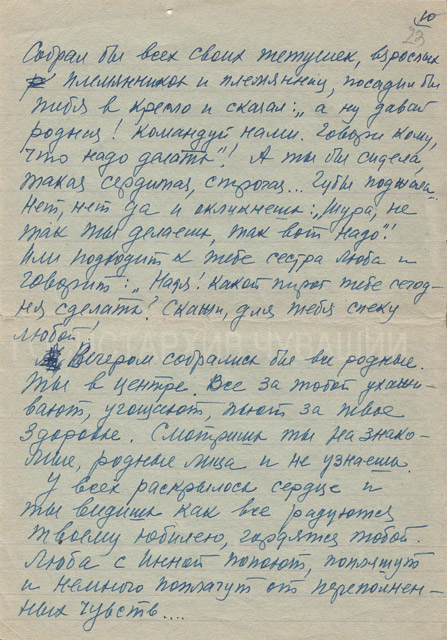 10
23
Собрал бы всех своих тетушек, взрослых
племянников и племянниц, посадил бы
тебя в кресло и сказал: „а ну давай
родная! Командуй нами. Говори кому,
что надо делать"! А ты бы сидела,
такая сердитая, строгая... Губы поджала.
Нет, нет да и окликнешь: „Шура, не
так ты делаешь, так вот надо"!
Или подходит к тебе сестра Люба и
говорит: „Надя! Какой пирог тебе сегод-
ня сделать? Скажи, для тебя спеку
любой!
Вечером собрались бы все родные.
Ты в центре. Все за тобой ухажи-
вают, угощают, пьют за твое
здоровье. Смотришь ты на знако-
мые, родные лица и не узнаешь.
У всех раскрылось сердце и
ты видишь как все радуются
твоему юбилею, гордятся тобой.
Люба с Инной попоют, попляшут
и немного поплачут от переполнен-
ных чувств....